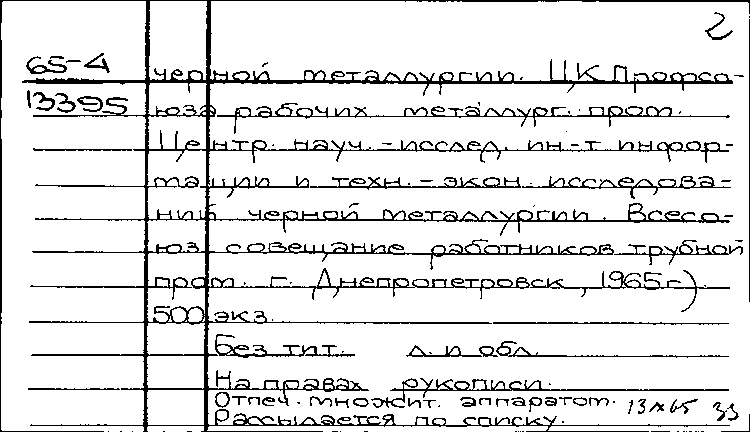 2
65-4 черной металлургии. ЦК Профсо-
13395 юза рабочих металлург. пром.
Центр. науч.-исслед. ин-т инфор-
мации и техн.-экон. исследова-
ний черной металлургии. Всесо-
юз. совещание работников трубной
пром. г. Днепропетровск, 1965г.)
500 экз.
Без тит. л. и обл.
На правах рукописи.
Отпеч. множит. аппаратом.
Рассылается по списку.